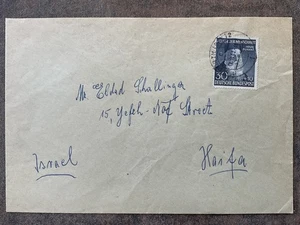 30
DEUTSCHE BUNDESPOST
Mr. Eldad Schallinger
15, Yefeh-Nof Street
Israel
Haifa